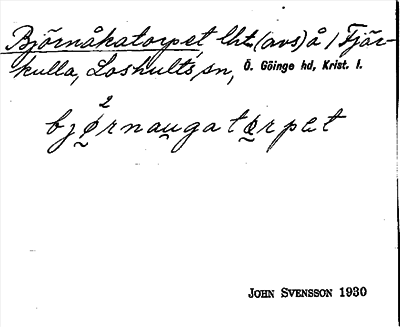 Björnåkatorpet lht (avs) å / Fjär-
kulla, Loshults sn, Ö. Göinge hd, Krist. l.
2
bjørnaugatørpet
JOHN SVENSSON 1930